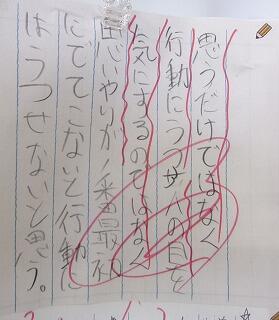 思うだけではなく
行動にうつす人の目を
気にするのではなく
思いやりが一番最初
にでてこないと行動に
はうつせないと思う。